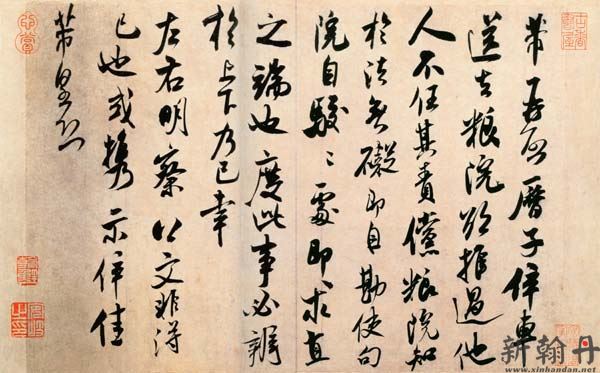 芾再啓曆子倅專
送去粮院欲推過他
人不任其責儻粮院知
於法無礙即自勘使句
院自駁〻處即求直
之端也度此事必辨
於上下乃已幸
左右明察以文非得
已也或攜示倅佳
芾皇恐
新翰丹
www.xinhandan.net